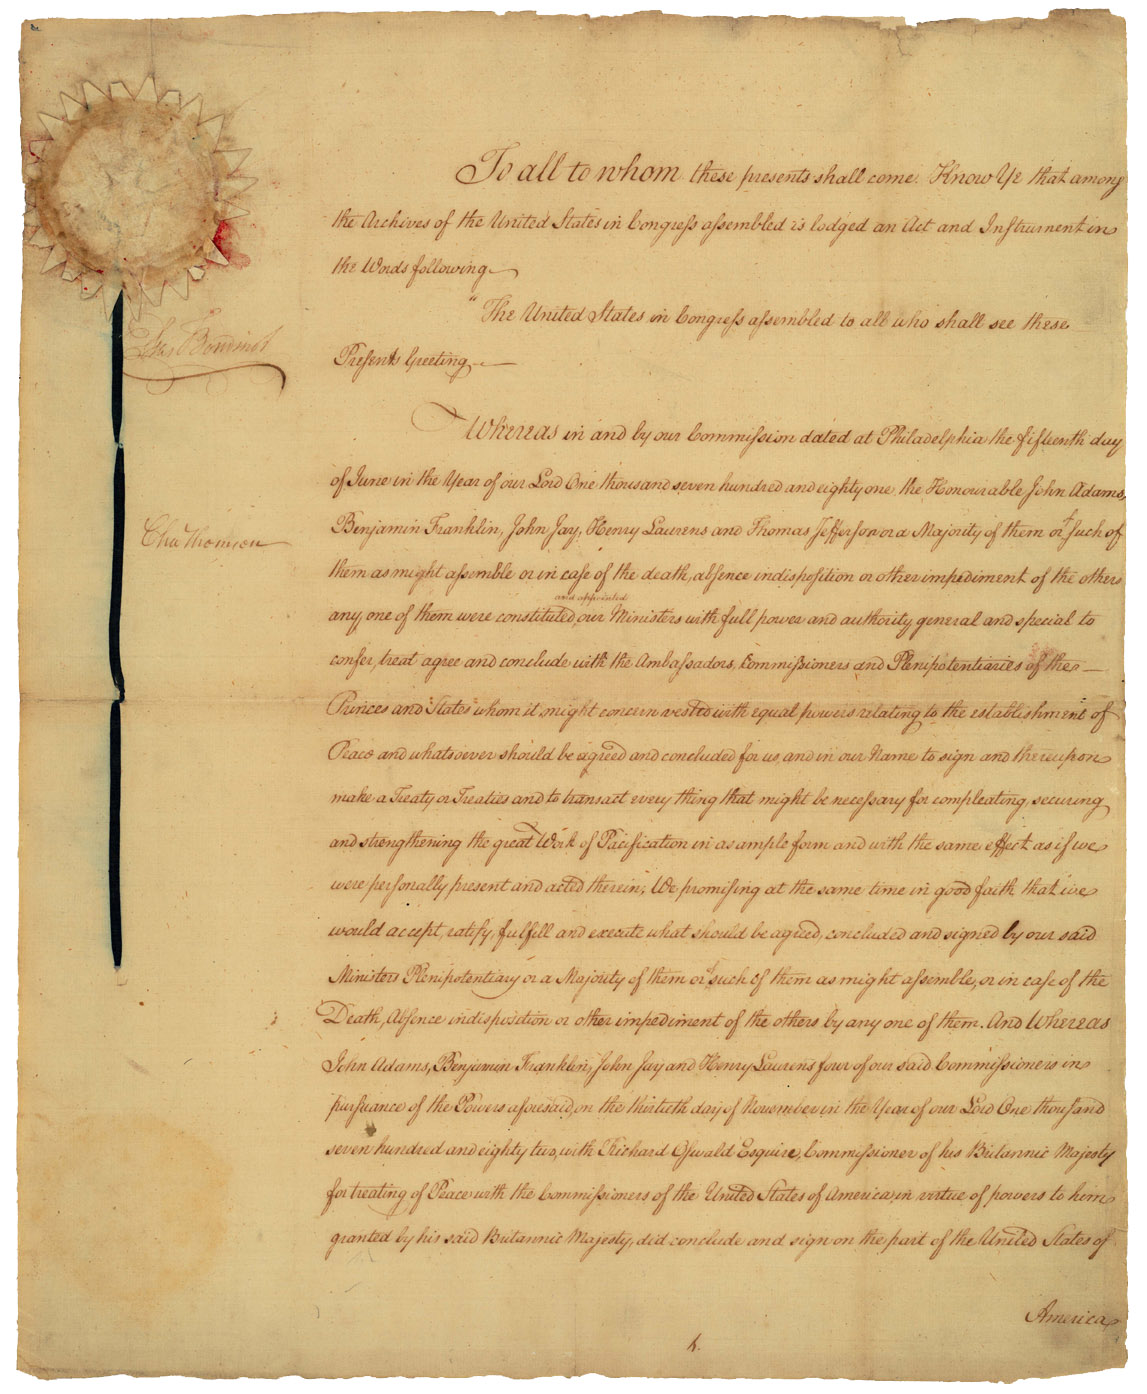 To all to whom these presents shall come. Know Ye that among
the Archives of the United States in Congress assembled is lodged an Act and Instrument in
the Words following
"The United States in Congress assembled to all who shall see these
Presents Greeting
Elias Boudinot
Whereas in and by our Commission dated at Philadelphia the fifteenth day
of June in the Year of our Lord One thousand seven hundred and eighty one, the Honourable John Adams,
Cha Thomson
Benjamin Franklin, John Jay, Henry Laurens and Thomas Jefferson or a Majority of them or of such of
them as might assemble or in case of the death, absence indisposition or other impediment of the others
and appointed
any one of them were constituted our Ministers with full power and authority general and special to
confer, treat agree and conclude with the Ambassadors, Commissioners and Plenipotentiaries of the
Princes and States whom it might concern vested with equal powers relating to the establishment of
Peace and whatsoever should be agreed and concluded for us, and in our Name to sign and thereupon
make a Treaty or Treaties and to transact every thing that might be necessary for compleating, securing
and strengthening the great Work of Pacification in as ample form and with the same effect as if we
were personally present and acted therein; We promising at the same time in good faith that we
would accept, ratify, fulfill and execute what should be agreed, concluded and signed by our said
Ministers Plenipotentiary or a Majority of them or of such of them as might assemble, or in case of the
Death, Absence indisposition or other impediment of the others by any one of them. And Whereas
John Adams, Benjamin Franklin, John Jay and Henry Laurens four of our said Commissioners in
pursuance of the Powers aforesaid, on the thirtieth day of November in the Year of our Lord One thousand
seven hundred and eighty two, with Richard Oswald Esquire, Commissioner of his Britannic Majesty
for treating of Peace with the Commissioners of the United States of America, in virtue of powers to him
granted by his said Britannic Majesty, did conclude and sign on the part of the United States of
America,